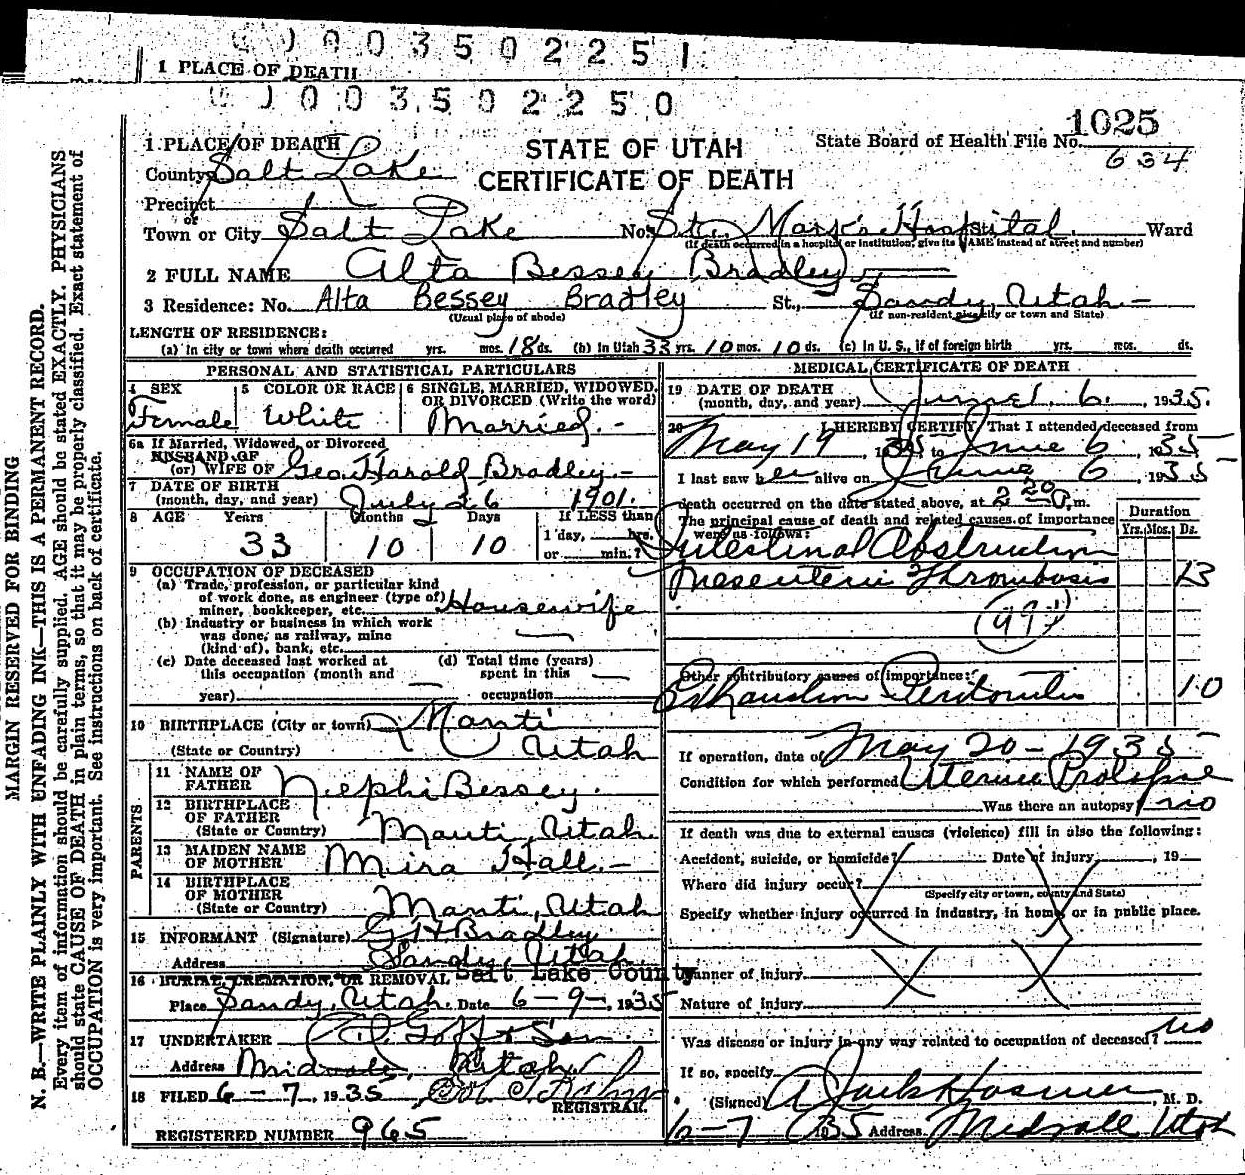 0 0 0 3 5 0 2 2 5 1
1 PLACE OF DEATH
0 0 0 3 5 0 2 2 5 0
1025
1 PLACE OF DEATH
STATE OF UTAH
State Board of Health File No. 634
County Salt Lake
CERTIFICATE OF DEATH
Precinct
or
Town or City Salt Lake No. St. Mark's Hospital Ward
(If death occurred in a hospital or institution, give its NAME instead of street and number)
2 FULL NAME Alta Bessey Bradley
3 Residence: No. Alta Bessey Bradley St., Sandy, Utah
(Usual place of abode) (If non-resident give city or town and State)
LENGTH OF RESIDENCE:
(a) In city or town where death occurred yrs. mos. 18 ds. (b) In Utah 33 yrs. 10 mos. 10 ds. (c) In U. S., if of foreign birth yrs. mos. ds.
PERSONAL AND STATISTICAL PARTICULARS
4 SEX Female
5 COLOR OR RACE White
6 SINGLE, MARRIED, WIDOWED, OR DIVORCED (Write the word) Married.
6a If Married, Widowed, or Divorced
HUSBAND OF
(or) WIFE OF Geo. Harold Bradley
7 DATE OF BIRTH
(month, day, and year) July 26 1901.
8 AGE Years Months Days If LESS than
33 10 10 1 day, hrs.
or min.?
9 OCCUPATION OF DECEASED
(a) Trade, profession, or particular kind
of work done, as engineer (type of)
miner, bookkeeper, etc. Housewife
(b) Industry or business in which work
was done, as railway, mine
(kind of), bank, etc.
(c) Date deceased last worked at
this occupation (month and
year)
(d) Total time (years)
spent in this
occupation
10 BIRTHPLACE (City or town) Manti
(State or Country) Utah
PARENTS
11 NAME OF
FATHER Nephi Bessey.
12 BIRTHPLACE
OF FATHER
(State or Country) Manti, Utah.
13 MAIDEN NAME
OF MOTHER Mira Hall.
14 BIRTHPLACE
OF MOTHER
(State or Country) Manti, Utah
15 INFORMANT (Signature) G H Bradley
Address Sandy, Utah
16 BURIAL, CREMATION, OR REMOVAL Salt Lake County
Place Sandy, Utah. Date 6-9-, 1935
17 UNDERTAKER Goff & Son
Address Midvale, Utah
18 FILED 6-7, 1935
REGISTRAR.
REGISTERED NUMBER 965
MEDICAL CERTIFICATE OF DEATH
19 DATE OF DEATH
(month, day, and year) June 6, 1935.
20 I HEREBY CERTIFY, That I attended deceased from
May 19, 1935 to June 6, 1935
I last saw her alive on June 6 1935
death occurred on the date stated above, at 2 20 P.m.
The principal cause of death and related causes of importance
were as follows:
Duration
Yrs. Mos. Ds.
Intestinal Obstruction
Mesenteric Thrombosis 13
Other contributory causes of importance:
Exhaustion Peritonitis 10
If operation, date of May 20 - 1935
Condition for which performed Uterine Prolapse
Was there an autopsy? no
If death was due to external causes (violence) fill in also the following:
Accident, suicide, or homicide? Date of injury, 19
Where did injury occur?
(Specify city or town, county and State)
Specify whether injury occurred in industry, in home, or in public place.
Manner of injury
Nature of injury
Was disease or injury in any way related to occupation of deceased? No
If so, specify
(Signed) A Jack Hosmer, M. D.
6-7 1935 Address Midvale Utah
MARGIN RESERVED FOR BINDING
N. B.—WRITE PLAINLY WITH UNFADING INK—THIS IS A PERMANENT RECORD.
Every item of information should be carefully supplied. AGE should be stated EXACTLY. PHYSICIANS
should state CAUSE OF DEATH in plain terms, so that it may be properly classified. Exact statement of
OCCUPATION is very important. See instructions on back of certificate.